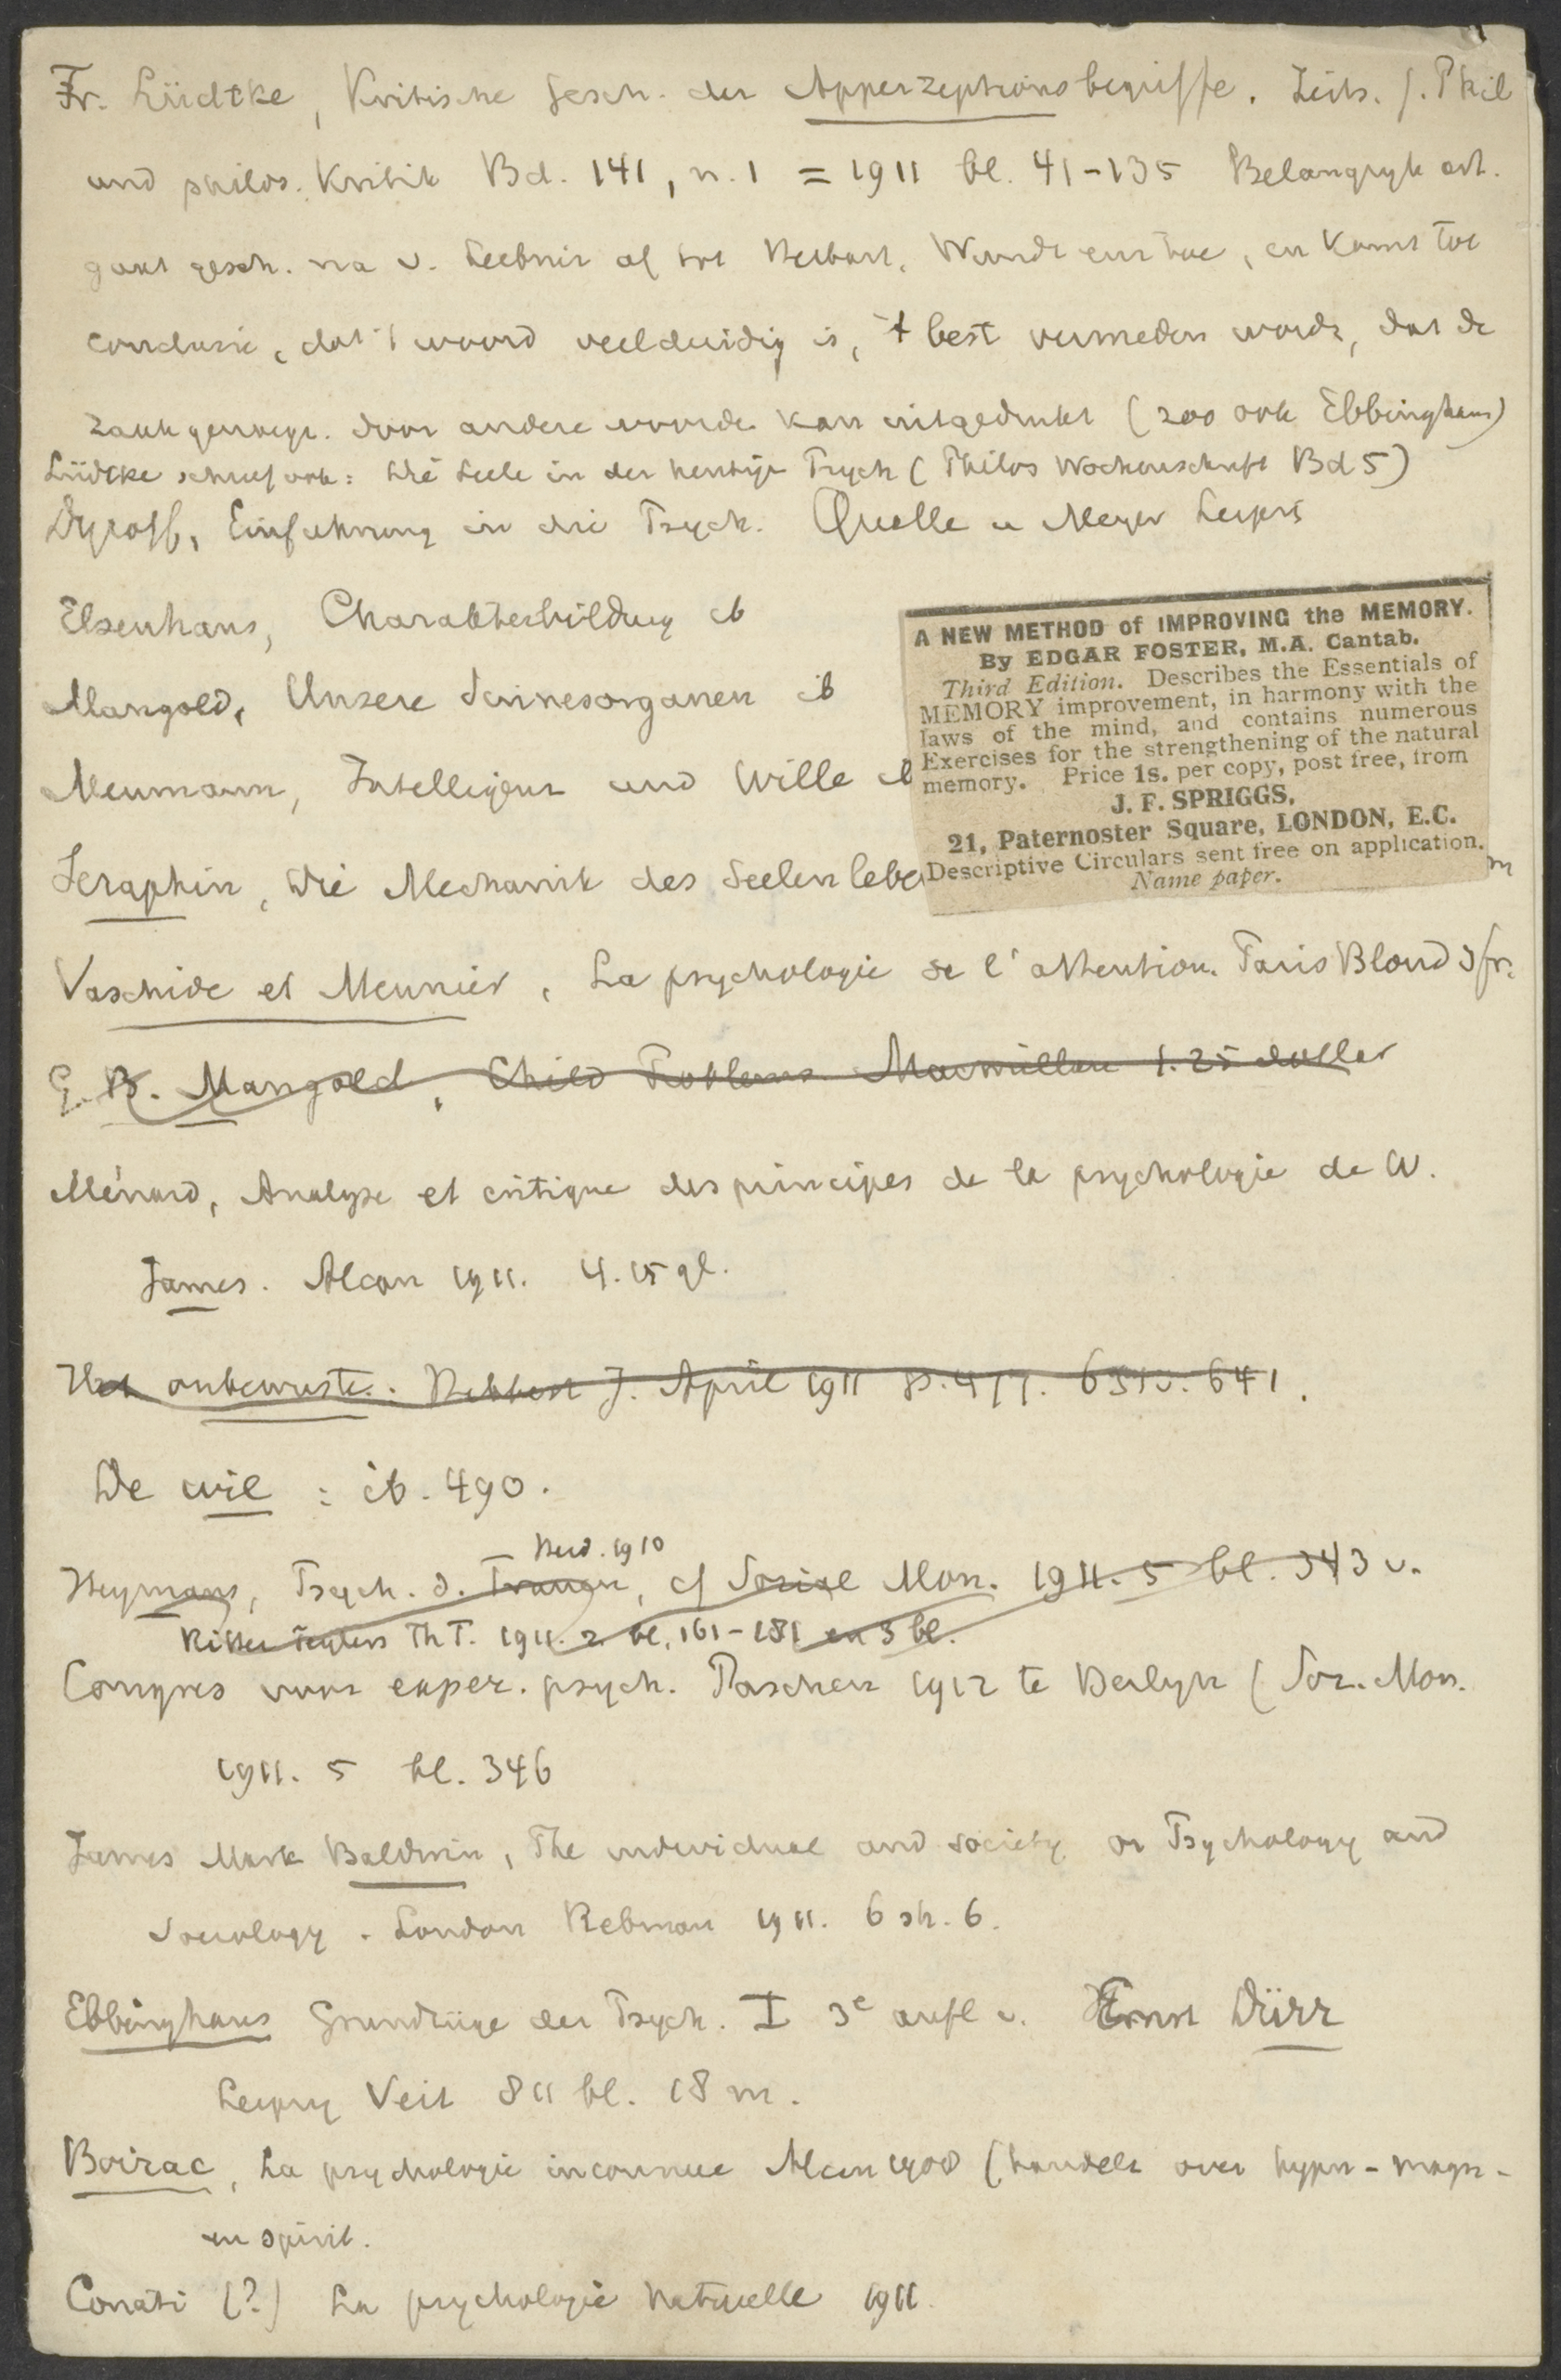 Fr. Lüdtke, Kritische Gesch. der Apperzeptionsbegriffe. Zeits. f. Phil
und philos. Kritik Bd. 141, n. 1 = 1911 bl. 41-135 Belangryk art.
gaat gesch. na v. Leibniz af tot Herbart, Wundt enz toe, en komt tot
conclusie, dat 't woord veelduidig is, 't best vermeden wordt, dat de
zaak genoegz. door andere woorde kan uitgedrukt (zoo ook Ebbinghaus)
Lüdtke schreef ook: Die Seele in der heutige Psych (Philos Wochenschrift Bd 5)
Dyroff, Einfuhrung in die Psych. Quelle u Meyer Leipzig
Elsenhans, Charakterbildung ib
Mangold, Unsere Sinnesorganen ib
Meumann, Intelligenz und Wille ib
A NEW METHOD of IMPROVING the MEMORY.
By EDGAR FOSTER, M.A. Cantab.
Third Edition. Describes the Essentials of
MEMORY improvement, in harmony with the
laws of the mind, and contains numerous
Exercises for the strengthening of the natural
memory. Price 1s. per copy, post free, from
J. F. SPRIGGS,
21, Paternoster Square, LONDON, E.C.
Descriptive Circulars sent free on application.
Name paper.
Seraphin, Die Mechanik des Seelenlebe m
Vaschide et Meunier, La psychologie de l'attention. Paris Bloud 3 fr.
G. B. Mangold, Child Problems Macmillan 1.25 dollar
Ménard, Analyse et critique des principes de la psychologie de W.
James. Alcan 1911. 4.15 gl.
Het onbewuste. Hibbert J. April 1911 p. 477. 631v. 641.
De wil : ib. 490.
Ned. 1910
Heymans, Psych. d. Frauen, cf Soziale Mon. 1911. 5 bl. 343 v.
Ritter Teylers Th T. 1911. 2 bl. 161-181 en 3 bl.
Congres voor exper. psych. Paschen 1912 te Berlyn (Soz. Mon.
1911. 5 bl. 346
James Mark Baldwin, The individual and society or Psychology and
Sociology. London Rebman 1911. 6 sh. 6.
Ebbinghaus Grundzüge der Psych. I 3e aufl v. Ernst Dürr
Leipzig Veit 811 bl. 18 m.
Boirac, La psychologie inconnue Alcan 1908 (handelt over hypn - magn -
en spirit.
Conati (?) La psychologie naturelle 1911.